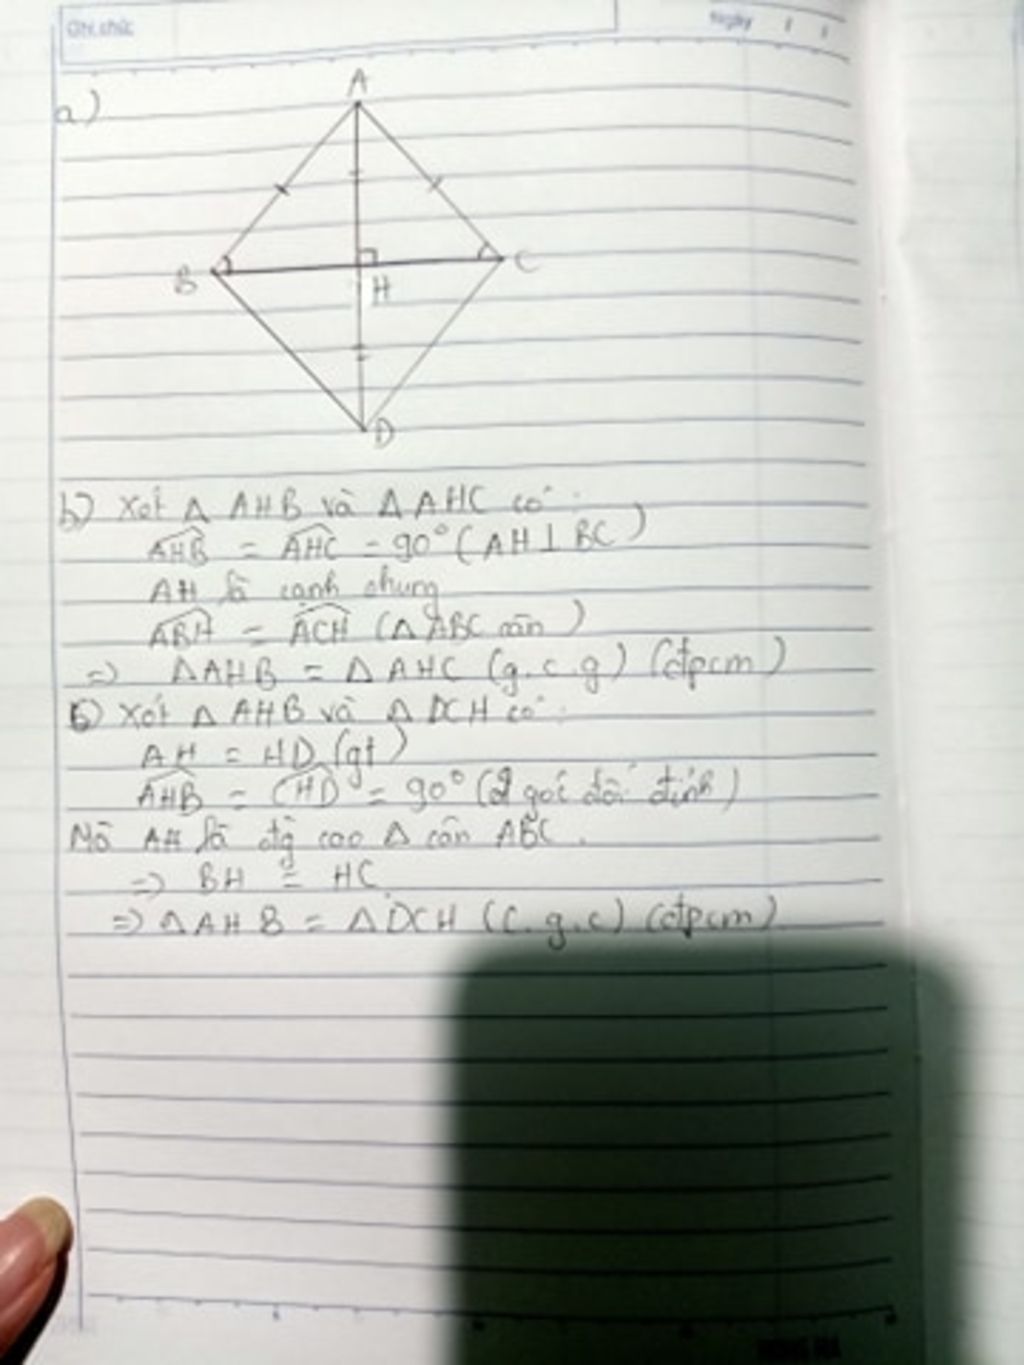 Ghi chú:
Ngày / /
a)
A
B
C
H
D
b) Xét Δ AHB và Δ AHC có :
AHB = AHC = 90° (AH ⊥ BC)
AH là cạnh chung
ABH = ACH (Δ ABC cân)
=> ΔAHB = Δ AHC (g.c.g) (đpcm)
c) Xét Δ AHB và Δ DCH có :
AH = HD (gt)
AHB = CHD = 90° (2 góc đối đỉnh)
Mà AH là đg cao Δ cân ABC.
=> BH = HC
=> Δ AHB = Δ DCH (c.g.c) (đpcm)